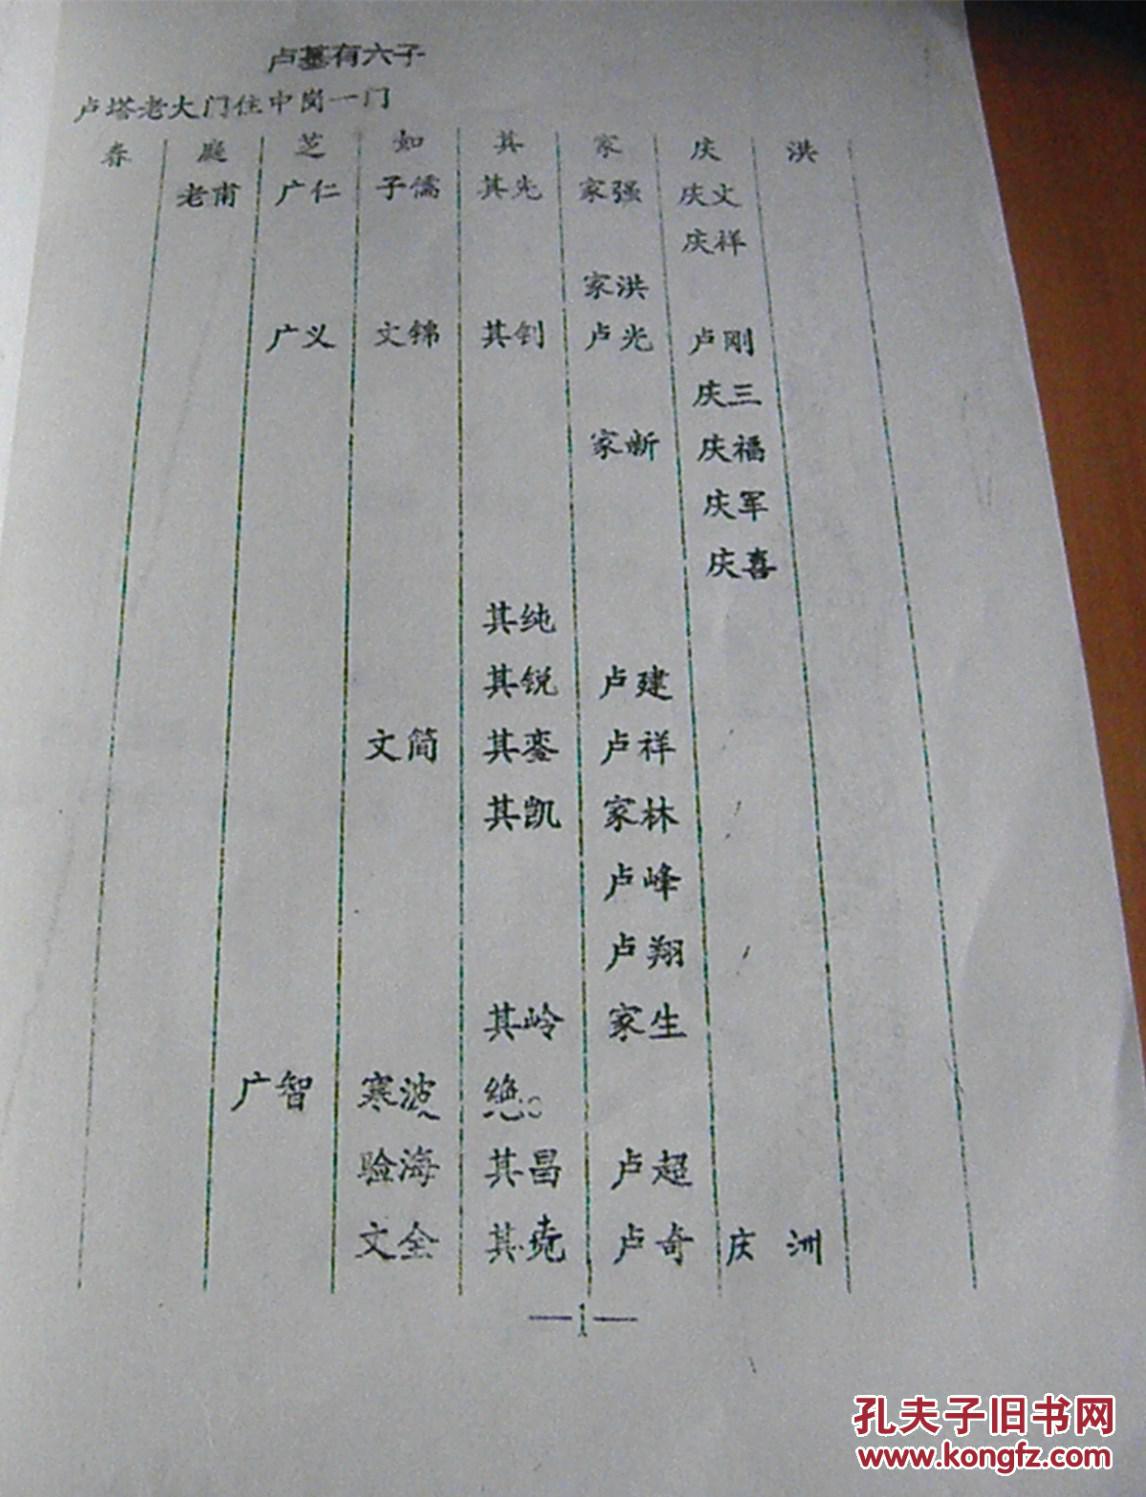 卢基有六子
卢塔老大门住中岗一门
春 庭 芝 如 其 家 庆 洪
老甫 广仁 子儒 其先 家强 庆文
庆祥
家洪
广义 文锦 其钊 卢光 卢刚
庆三
家新 庆福
庆军
庆喜
其纯
其锐 卢建
文简 其銮 卢祥
其凯 家林
卢峰
卢翔
其岭 家生
广智 寒波 绝
验海 其昌 卢超
文全 其尧 卢奇 庆洲
—1—
孔夫子旧书网
www.kongfz.com